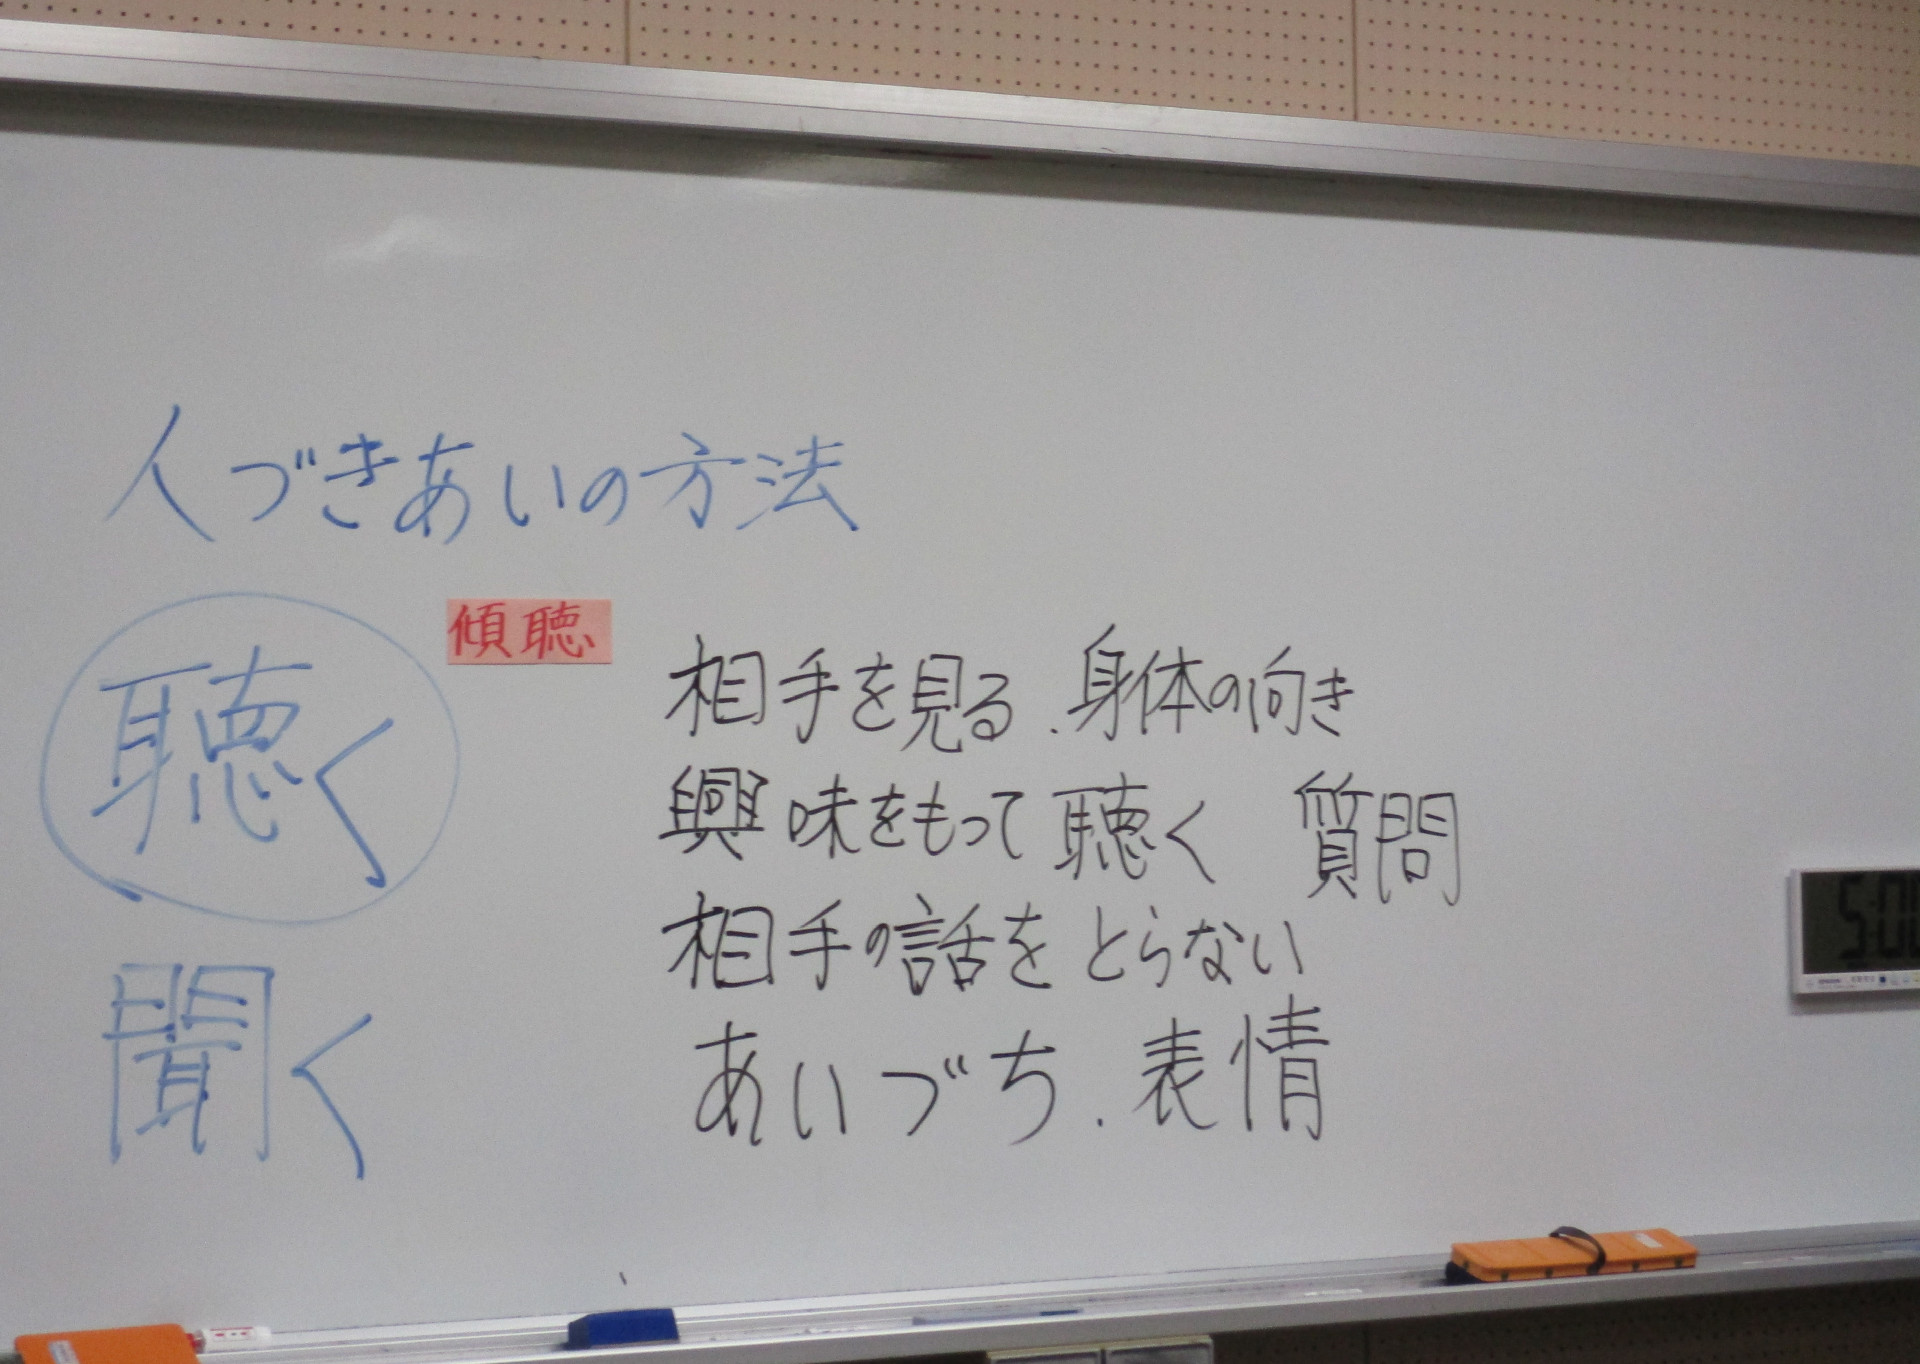 人づきあいの方法
聴く
傾聴
相手を見る.身体の向き
興味をもって聴く 質問
相手の話をとらない
あいづち.表情
聞く
5:00